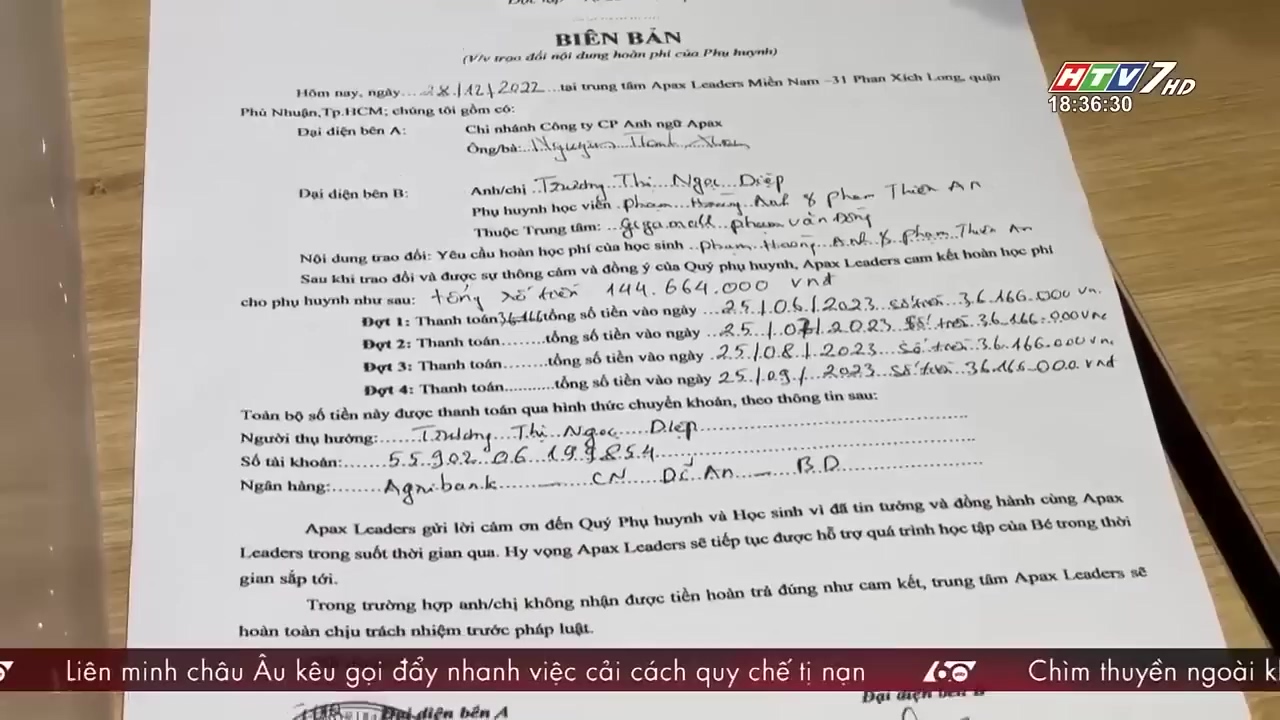 BIÊN BẢN
(V/v trao đổi nội dung hoàn phí của Phụ huynh)
HTV7 HD
18:36:30
Hôm nay, ngày....28./12/2022....tại trung tâm Apax Leaders Miền Nam –31 Phan Xích Long, quận
Phú Nhuận,Tp.HCM; chúng tôi gồm có:
Đại diện bên A: Chi nhánh Công ty CP Anh ngữ Apax
Ông/bà:..Nguyễn...Thanh
Đại diện bên B: Anh/chị..Trương...Thị...Ngọc...Diệp
Phụ huynh học viên..Phạm...Hoàng...Anh & Phạm Thiên An
Thuộc Trung tâm:...Gigamall...phạm văn Đồng
Nội dung trao đổi: Yêu cầu hoàn học phí của học sinh..phạm..Hoàng...Anh & Phạm Thiên An
Sau khi trao đổi và được sự thông cảm và đồng ý của Quý phụ huynh, Apax Leaders cam kết hoàn học phí
cho phụ huynh như sau: tổng số tiền 144.664.000 vnđ
Đợt 1: Thanh toán 36.166 tổng số tiền vào ngày ...25./.06./.2023 số tiền..36.166.000 vn.
Đợt 2: Thanh toán........tổng số tiền vào ngày ...25./.07/.2023 số tiền..36.166.000 vnc
Đợt 3: Thanh toán........tổng số tiền vào ngày .25./.08./.2023 số tiền..36.166.000 vn.
Đợt 4: Thanh toán..........tổng số tiền vào ngày 25./.09./...2023 số tiền..36.166.000 vnđ
Toàn bộ số tiền này được thanh toán qua hình thức chuyển khoản, theo thông tin sau:
Người thụ hưởng:......Trương...Thị...Ngọc....Diệp......
Số tài khoản:.......5590206199854......
Ngân hàng:.......Agribank......CN...Dĩ An....B.D......
Apax Leaders gửi lời cảm ơn đến Quý Phụ huynh và Học sinh vì đã tin tưởng và đồng hành cùng Apax
Leaders trong suốt thời gian qua. Hy vọng Apax Leaders sẽ tiếp tục được hỗ trợ quá trình học tập của Bé trong thời
gian sắp tới.
Trong trường hợp anh/chị không nhận được tiền hoàn trả đúng như cam kết, trung tâm Apax Leaders sẽ
hoàn toàn chịu trách nhiệm trước pháp luật.
Liên minh châu Âu kêu gọi đẩy nhanh việc cải cách quy chế tị nạn 60 Chìm thuyền ngoài
Đại diện bên A
Đại diện bên B